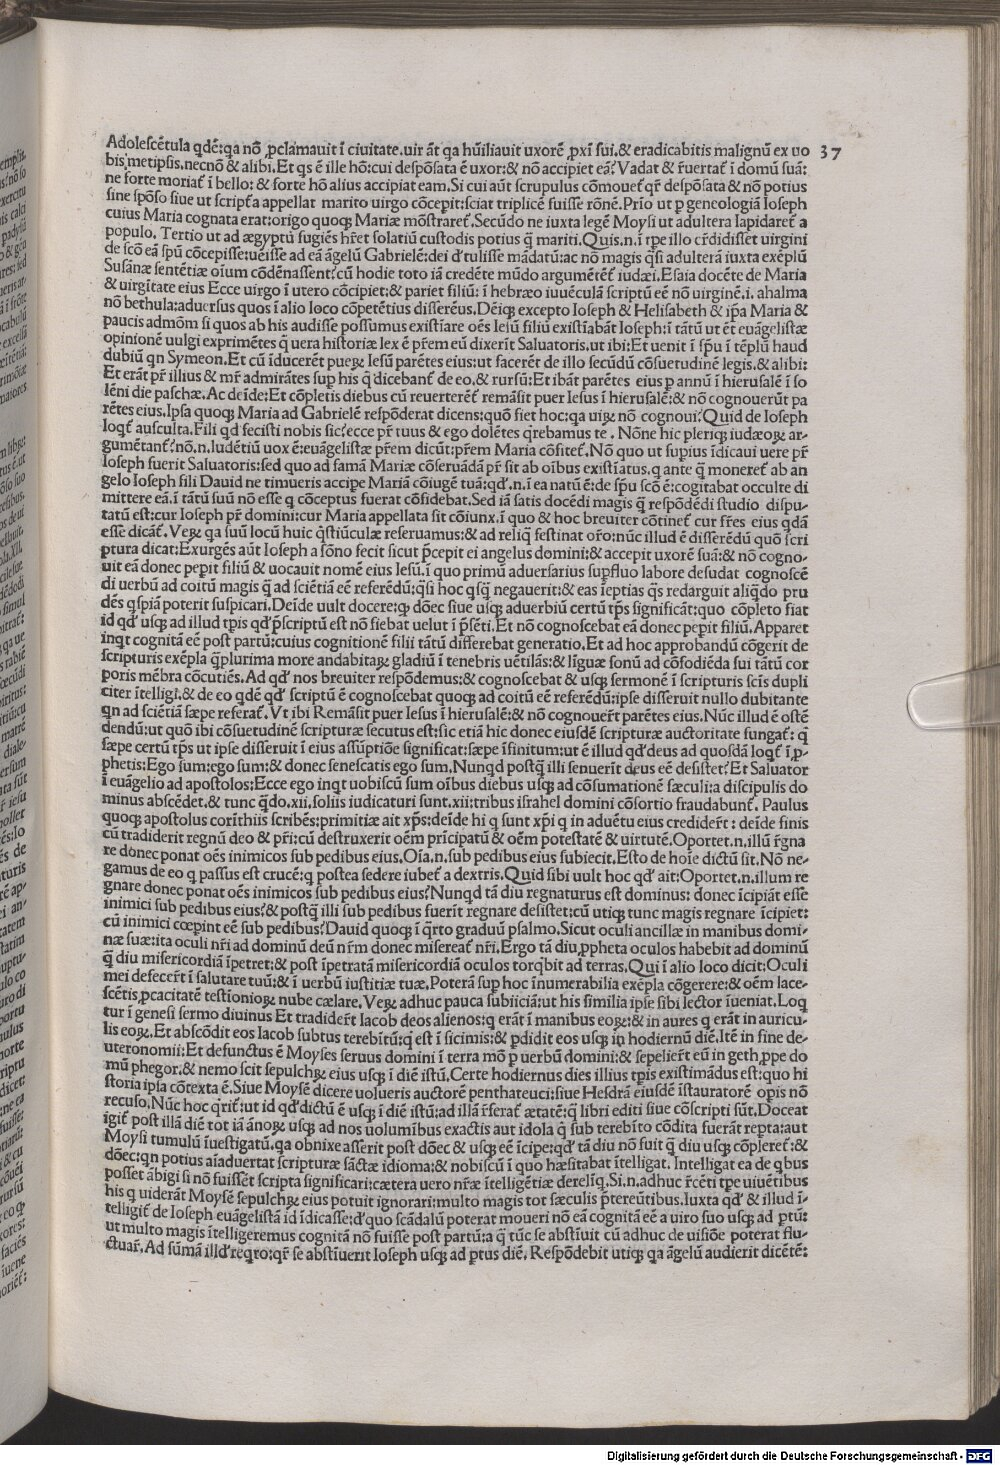 Adolescẽtula q̃dẽ:q̃a nõ ꝓclamauit ĩ ciuitate.uir ãt q̃a hũiliauit uxorẽ ꝓxĩ sui.& eradicabitis malignũ ex uo
37
bis metipsis.necnõ & alibi.Et q̃s ẽ ille hõ:cui despõsata ẽ uxor:& nõ accipiet eã?Vadat & r̃uertat̃ ĩ domũ suã:
ne forte moriat̃ ĩ bello:& forte hõ alius accipiat eam.Si cui aũt scrupulus cõmouet̃ q̃r despõsata & nõ potius
sine spõso siue ut script̃a appellat marito uirgo cõcepit:sciat triplicẽ fuisse rõnẽ.Prĩo ut p geneologiã Ioseph
cuius Maria cognata erat:origo quoqꝫ Mariæ mõstraret̃.Secũdo ne iuxta legẽ Moysi ut adultera lapidaret̃ a
populo. Tertio ut ad ægyptũ fugiẽs hr̃et solatiũ custodis potius q̃ mariti.Quis.n.ĩ tp̃e illo cr̃didisset uirgini
de scõ eã spũ cõcepisse:uẽisse ad eã ãgelũ Gabrielẽ:dei d̓tulisse mãdatũ:ac nõ magis q̃si adulterã iuxta exẽplũ
Susãnæ sentẽtiæ oĩum cõdẽnassent?cũ hodie toto iã credẽte mũdo argumẽtẽt̃ iudæi.Esaia docẽte de Maria
& uirgĩtate eius Ecce uirgo ĩ utero cõcipiet:& pariet filiũ: ĩ hebræo iuuẽculã scriptũ eẽ nõ uirginẽ.i. ahalma
nõ bethula:aduersus quos ĩ alio loco cõpetẽtius disserẽus.Dẽiqꝫ excepto Ioseph & Helisabeth & ip̃a Maria &
paucis admõm si quos ab his audisse possumus existĩare oẽs Iesũ filiũ existĩabãt Ioseph:ĩ tãtũ ut ẽt euãgelistæ
opinionẽ uulgi exprimẽtes q̃ uera historiæ lex ẽ pr̃em eũ dixerĩt Saluatoris.ut ibi:Et uenit ĩ spũ ĩ tẽplũ haud
dubiũ q̃n Symeon.Et cũ ĩducerẽt pueꝝ Iesũ parẽtes eius:ut facerẽt de illo secũdũ cõsuetudinẽ legis.& alibi:
Et erãt pr̃ illius & mr̃ admirãtes sup his q̃ dicebant̃ de eo.& rursũ:Et ibãt parẽtes eius p annũ ĩ hierusalẽ ĩ so
lẽni die paschæ.Ac deĩde:Et cõpletis diebus cũ reuerterẽt̃ remãsit puer Iesus ĩ hierusalẽ:& nõ cognouerũt pa
rẽtes eius.Ipsa quoqꝫ Maria ad Gabrielẽ respõderat dicens:quõ fiet hoc:q̃a uiꝝ nõ cognoui?Quid de Ioseph
loqt̃ ausculta.Fili q̃d fecisti nobis sic?ecce pr̃ tuus & ego dolẽtes q̃rebamus te . Nõne hic pleriqꝫ iudæoꝝ ar-
gumẽtant̃?nõ.n.Iudẽtiũ uox ẽ:euãgelistæ pr̃em dicũt:pr̃em Maria cõfitet̃.Nõ quo ut supius ĩdicaui uere pr̃
Ioseph fuerit Saluatoris:sed quo ad famã Mariæ cõseruãdã pr̃ sit ab oĩbus existĩatus.q ante q̃ moneret̃ ab an
gelo Ioseph fili Dauid ne timueris accipe Mariã cõiugẽ tuã:q̃d̓.n.ĩ ea natũ ẽ:de spũ scõ ẽ:cogitabat occulte di
mittere eã.ĩ tãtũ suũ nõ esse q cõceptus fuerat cõfidebat.Sed iã satis docẽdi magis q̃ respõdẽdi studio dispu-
tatũ est:cur Ioseph pr̃ domini:cur Maria appellata sit cõiunx.ĩ quo & hoc breuiter cõtinet̃ cur fr̃es eius q̃dã
esse dicãt̃. Veꝝ q̃a suũ locũ huic q̃stiũculæ reseruamus:& ad reliq̃ festinat or̃o:nũc illud ẽ disserẽdũ quõ scri
ptura dicat:Exurgẽs aũt Ioseph a sõno fecit sicut p̃cepit ei angelus domini:& accepit uxorẽ suã:& nõ cogno-
uit eã donec pepit filiũ & uocauit nomẽ eius Iesũ.ĩ quo primũ aduersarius supfluo labore desudat cognoscẽ
di uerbũ ad coitũ magis q̃ ad sciẽtiã eẽ referẽdũ:q̃si hoc q̃sq̃ negauerit:& eas ĩeptias q̃s redarguit aliq̃do pru
dẽs q̃spiã poterit suspicari.Deĩde uult docere:q dõec siue usqꝫ aduerbiũ certũ tp̃s significãt:quo cõpleto fiat
id q̃d̓ usqꝫ ad illud tp̃is q̃d̓ p̃scriptũ est nõ fiebat uelut ĩ p̃sẽti.Et nõ cognoscebat eã donec pepit filiũ.Apparet
inq̃t cognitã eẽ post partũ:cuius cognitionẽ filii tãtũ differebat generatio.Et ad hoc approbandũ cõgerit de
scripturis exẽpla q̃plurima more andabitaꝝ gladiũ ĩ tenebris uẽtilãs:& lĩguæ sonũ ad cõfodiẽda sui tãtũ cor
poris mẽbra cõcutiẽs.Ad q̃d̓ nos breuiter respõdemus:& cognoscebat & usqꝫ sermonẽ ĩ scripturis scĩs dupli
citer ĩtelligi.& de eo q̃dẽ q̃d̓ scriptũ ẽ cognoscebat quoqꝫ ad coitũ eẽ referẽdũ:ipse disseruit nullo dubitante
q̃n ad sciẽtiã sæpe referat̃.Vt ibi Remãsit puer Iesus ĩ hierusalẽ:& nõ cognouer̃t parẽtes eius.Nũc illud ẽ ostẽ
dendũ:ut quõ ibi cõsuetudinẽ scripturæ secutus est:sic etiã hic donec eiusdẽ scripturæ auctoritate fungat̃: q̃
sæpe certũ tp̃s ut ipse disseruit ĩ eius assũptiõe significat:sæpe ĩfinitum:ut ẽ illud q̃d̓ deus ad quosdã loqt̃ ĩ ꝓ-
phetis:Ego sum:ego sum:& donec senescatis ego sum.Nunqd postq̃ illi senuerĩt deus eẽ desistet?Et Saluator
ĩ euãgelio ad apostolos:Ecce ego inq̃t uobiscũ sum oĩbus diebus usqꝫ ad cõsumationẽ sæculi:a discipulis do
minus abscẽdet.& tunc q̃do.xii.soliis iudicaturi sunt.xii:tribus israhel domini cõsortio fraudabunt̃. Paulus
quoqꝫ apostolus corĩthiis scribẽs:primitiæ ait xp̃s:deĩde hi q sunt xp̃i q in aduẽtu eius credider̃t : deĩde finis
cũ tradiderit regnũ deo & pr̃i:cũ destruxerit oẽm prĩcipatũ & oẽm potestatẽ & uirtutẽ.Oportet.n.illũ r̃gna
re donec ponat oẽs inimicos sub pedibus eius.Oĩa.n.sub pedibus eius subiecit.Esto de hoĩe dictũ sit.Nõ ne-
gamus de eo q passus est crucẽ:q postea sedere iubet̃ a dextris.Quid sibi uult hoc q̃d̓ ait:Oportet.n.illum re
gnare donec ponat oẽs inimicos sub pedibus eius?Nunqd tã diu regnaturus est dominus: donec ĩcipiãt esse
inimici sub pedibus eius?& postq̃ illi sub pedibus fuerĩt regnare desistet:cũ utiqꝫ tunc magis regnare ĩcipiet:
cũ inimici cœpint eẽ sub pedibus?Dauid quoqꝫ ĩ q̃rto graduũ psalmo.Sicut oculi ancillæ in manibus domi-
næ suæ:ita oculi nr̃i ad dominũ deũ nr̃m donec misereat̃ nr̃i.Ergo tã diu ꝓpheta oculos habebit ad dominũ
q̃ diu misericordiã ĩpetret:& post ĩpetratã misericordiã oculos torq̃bit ad terras.Qui ĩ alio loco dicit:Oculi
mei defecer̃t ĩ salutare tuũ:& ĩ uerbũ iustitiæ tuæ.Poterã sup hoc ĩnumerabilia exẽpla cõgerere:& oẽm lace-
scẽtis ꝓcacitatẽ testionioꝝ nube cælare.Veꝝ adhuc pauca subiiciã:ut his similia ipse sibi lector ĩueniat.Loq̃
tur ĩ genesi sermo diuinus Et tradider̃t Iacob deos alienos:q erãt ĩ manibus eoꝝ:& in aures q erãt in auricu-
lis eoꝝ.Et abscõdit eos Iacob subtus terebĩtũ:q̃ est ĩ sicimis:& pdidit eos usqꝫ in hodiernũ diẽ.Itẽ in fine de-
uteronomii:Et defunctus ẽ Moyses seruus domini ĩ terra mõ p uerbũ domini:& sepelier̃t eũ in geth ꝓpe do
mũ phegor.& nemo scit sepulchꝝ eius usqꝫ ĩ diẽ istũ.Certe hodiernus dies illius tp̃is existimãdus est:quo hi
storia ipsa cõtexta ẽ.Siue Moysẽ dicere uolueris auctorẽ penthateuci:siue Hesdrã eiusdẽ ĩstauratorẽ opis nõ
recuso.Nũc hoc q̃rit̃:ut id q̃d̓ dictũ ẽ usqꝫ ĩ diẽ istũ:ad illã r̃ferat̃ ætatẽ:q̃ libri editi siue cõscripti sũt.Doceat
igit̃ post illã diẽ tot iã ãnoꝝ usqꝫ ad nos uolumĩbus exactis aut idola q̃ sub terebĩto cõdita fuerãt repta:aut
Moysi tumulũ ĩuestigatũ.q̃a obnixe asserit post dõec & usqꝫ eẽ ĩcipe:q̃d̓ tã diu nõ fuit q̃ diu usqꝫ cõpleret̃:&
dõec:q̃n potius aĩaduertat scripturæ sãctæ idioma:& nobiscũ ĩ quo hæsitabat ĩtelligat. Intelligat ea de q̃bus
posset ãbigi si nõ fuissẽt scripta significari:cætera uero nr̃æ ĩtelligẽtiæ derelĩq̃.Si.n.adhuc r̃cẽti tp̃e uiuẽtibus
his q uiderãt Moysẽ sepulchꝝ eius potuit ignorari:multo magis tot sæculis p̃tereũtibus.Iuxta q̃d̓ & illud ĩ-
telligit̃ de Ioseph euãgelistã id ĩdicasse:d̓ quo scãdalũ poterat moueri nõ eã cognitã eẽ a uiro suo usqꝫ ad ptũ:
ut multo magis ĩtelligeremus cognitã nõ fuisse post partũ:a q̃ tũc se abstĩuit cũ adhuc de uisiõe poterat flu-
ctuar̃.Ad sũmã illd̓ reqro:q̃r se abstĩuerit Ioseph usqꝫ ad ptus diẽ. Respõdebit utiqꝫ q̃a ãgelũ audierit dicẽtẽ:
Digitalisierung gefördert durch die Deutsche Forschungsgemeinschaft - DFG